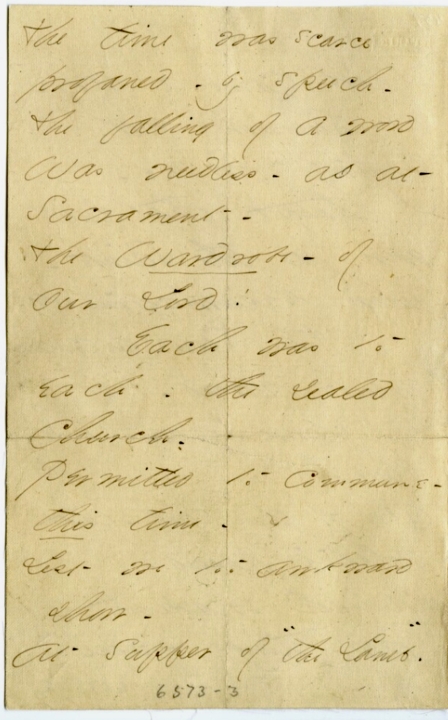 The time was scarce
profaned - by speech -
The falling of a word
Was needless - as at -
Sacrament -
The Wardrobe - of
Our Lord!
Each was to
Each - the sealed
Church -
Permitted to commune -
this time -
Lest we too awkward
show -
At Supper of "the Lamb".
6573-3